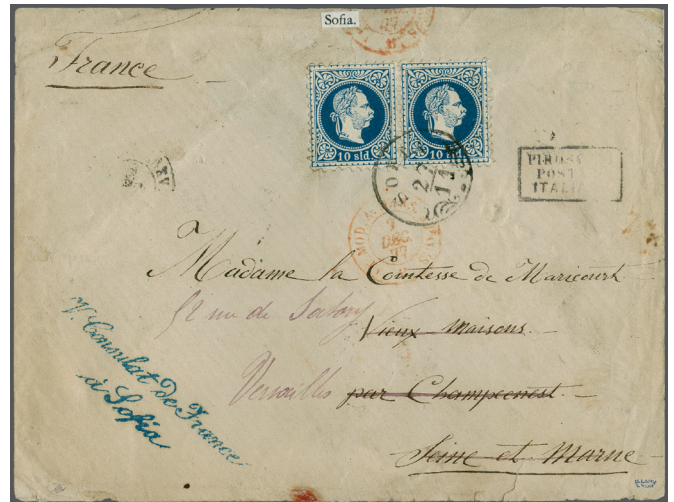 Sofia.
France
10 sld. 10
27
11
PIROSC
POST
ITALI
MODA
2
DEC
Madame la Comtesse de Maricourt
52 rue de Satory
Vieux Maisons.
Versailles par Champcenest.
Seine et Marne
V. Consulat de France
à Sofia